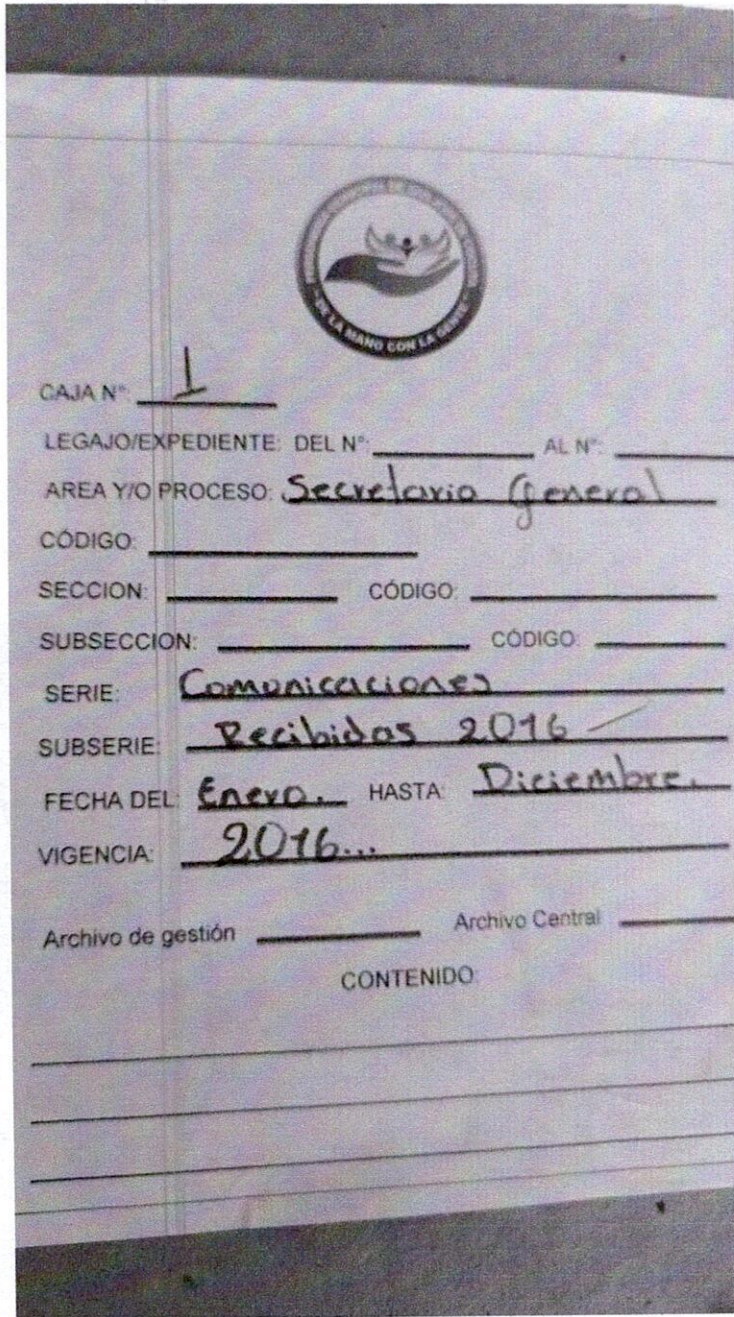 DE LA MANO CON LA GENTE
CAJA N°: 1
LEGAJO/EXPEDIENTE: DEL N°: AL N°:
AREA Y/O PROCESO: Secretaria General
CÓDIGO:
SECCION: CÓDIGO:
SUBSECCION: CÓDIGO:
SERIE: Comunicaciones
SUBSERIE: Recibidas 2016
FECHA DEL: Enero. HASTA: Diciembre.
VIGENCIA: 2016...
Archivo de gestión Archivo Central
CONTENIDO: